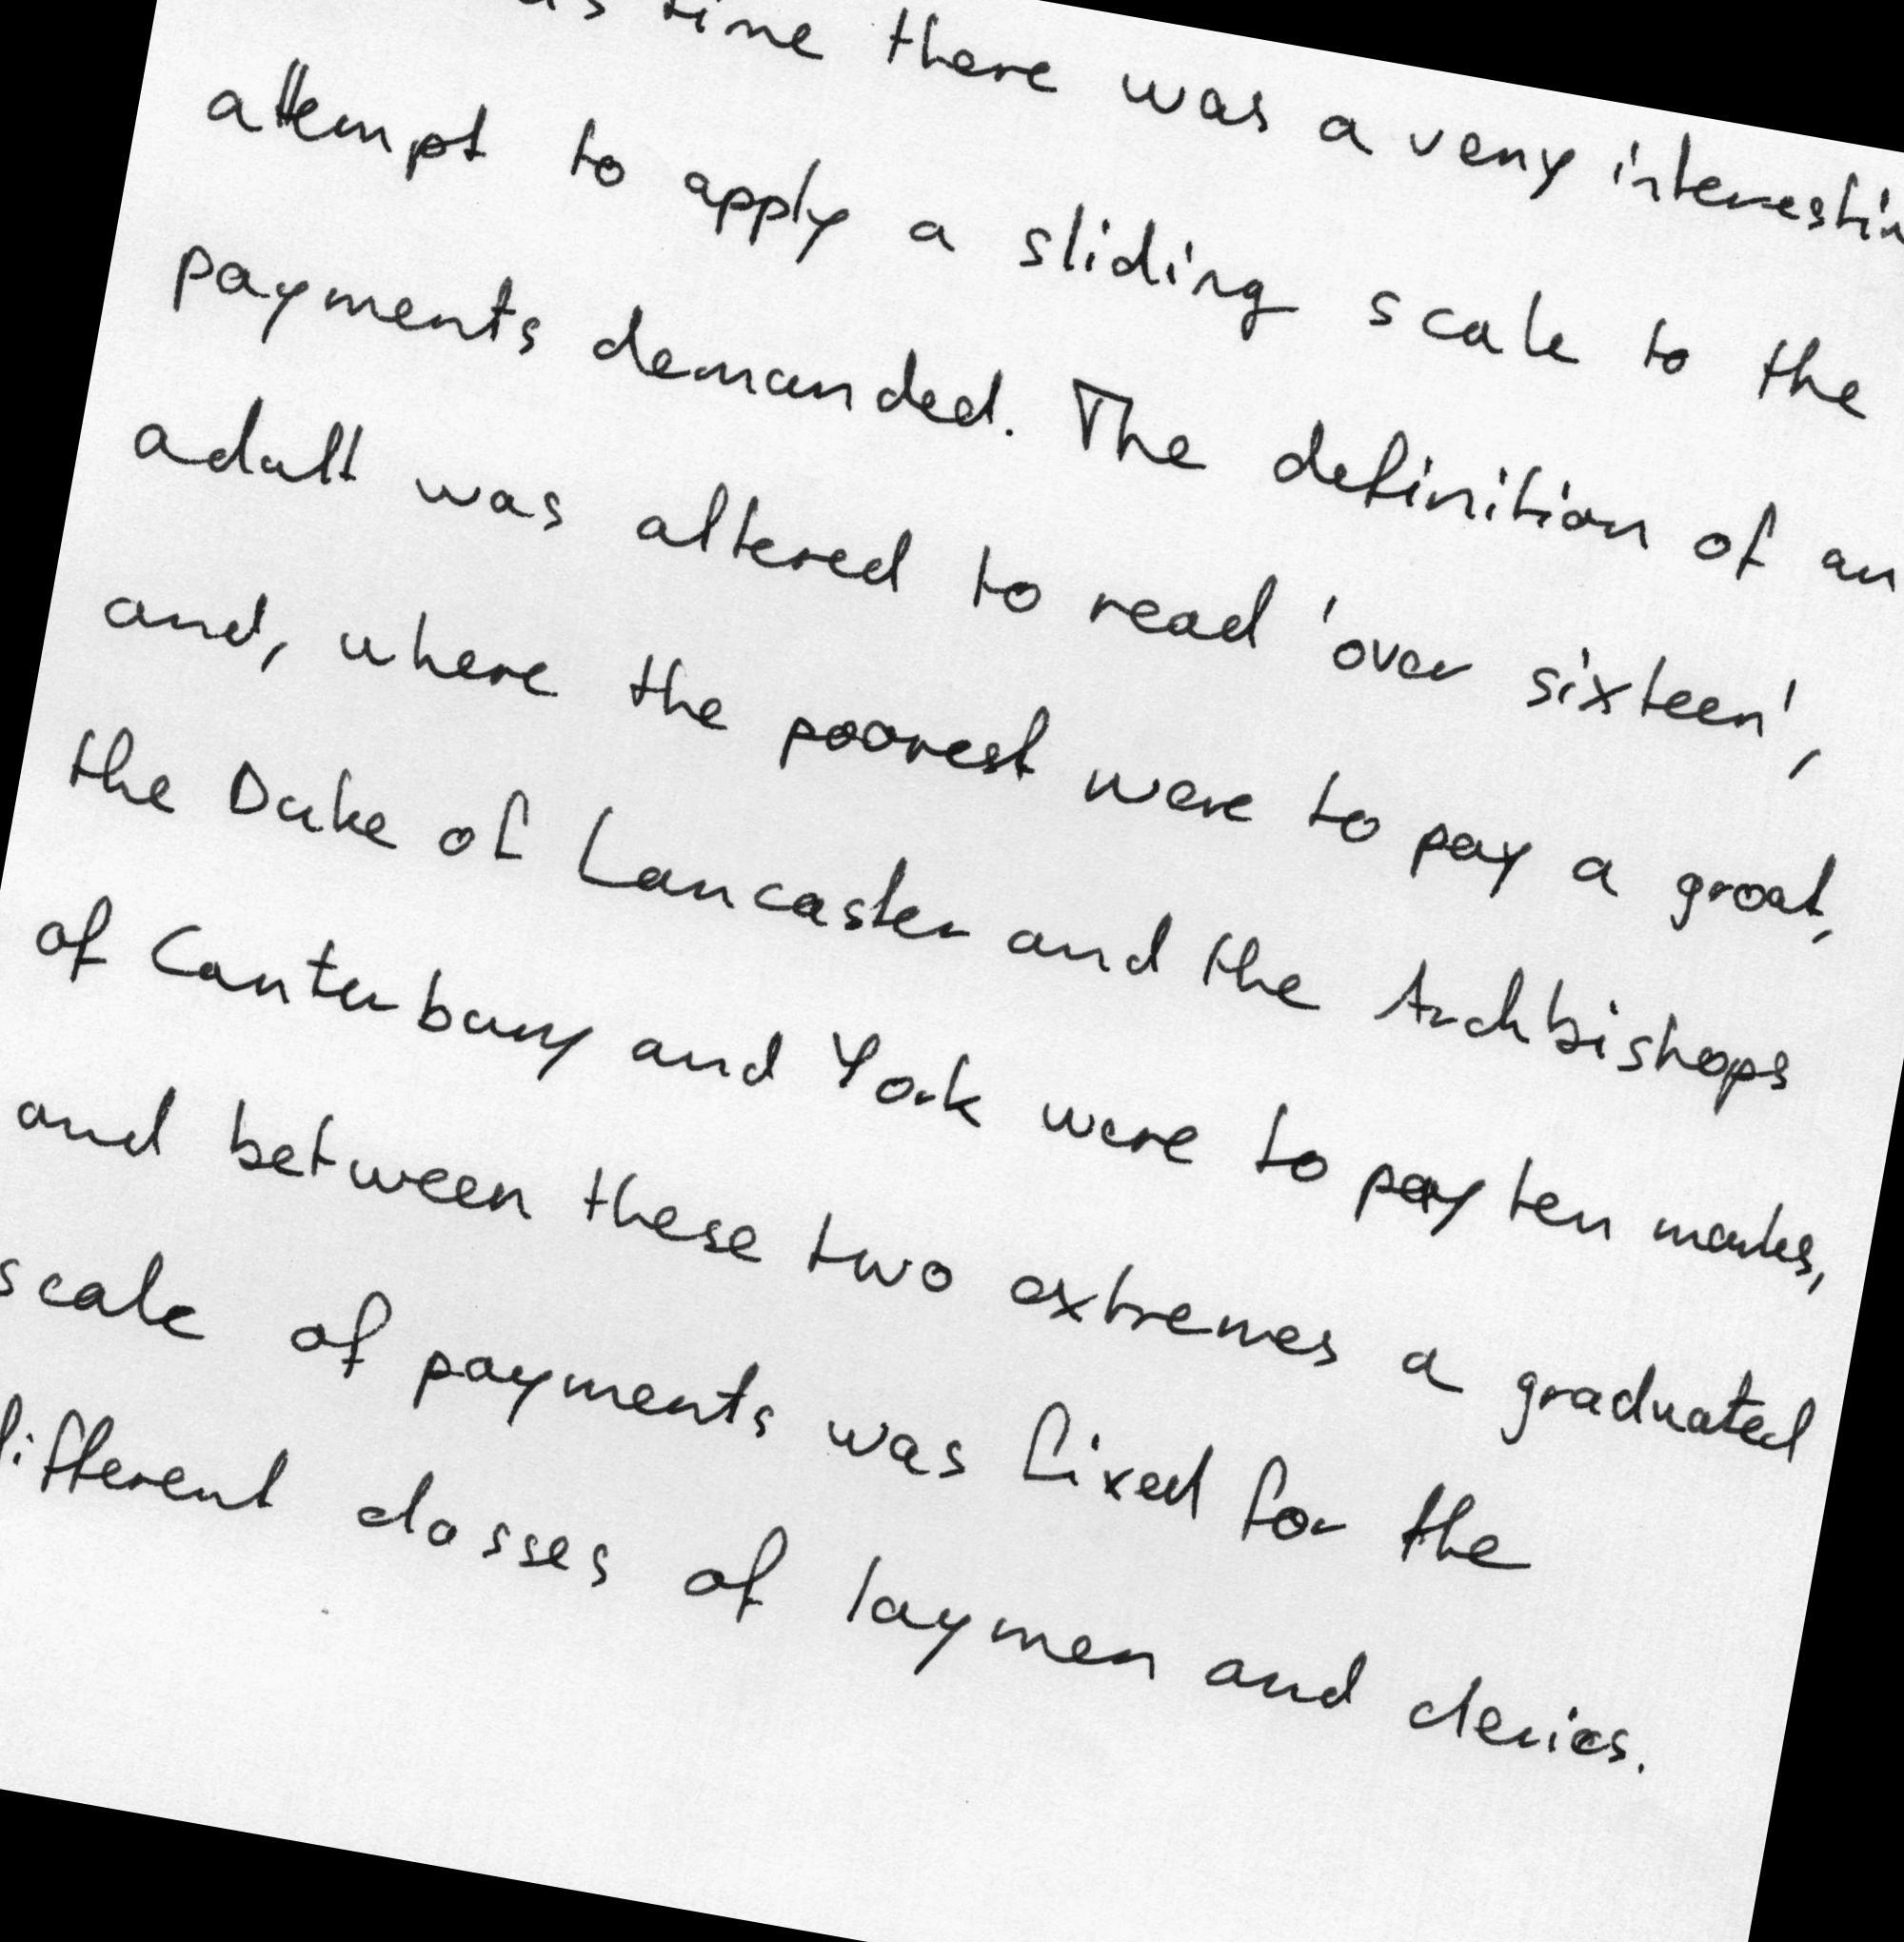 time there was a very interestin
attempt to apply a sliding scale to the
payments demanded. The definition of an
adult was altered to read 'over sixteen',
and, where the poorest were to pay a groat,
the Duke of Lancaster and the Archbishops
of Canterbury and York were to pay ten marks,
and between these two extremes a graduated
scale of payments was fixed for the
different classes of laymen and clerics.